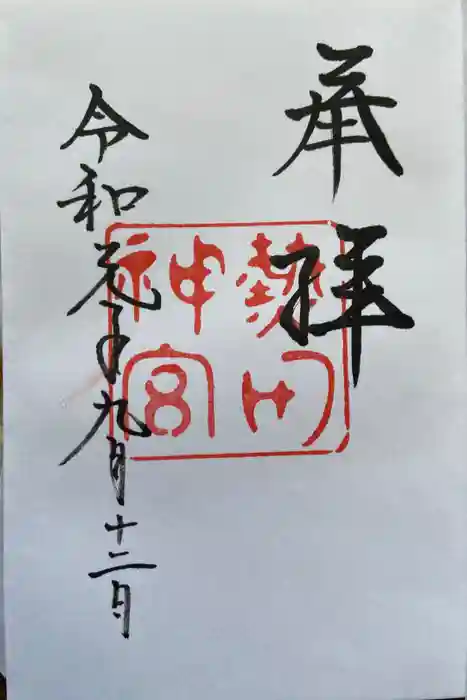 奉拝
熱田神宮
令和元年九月十二日